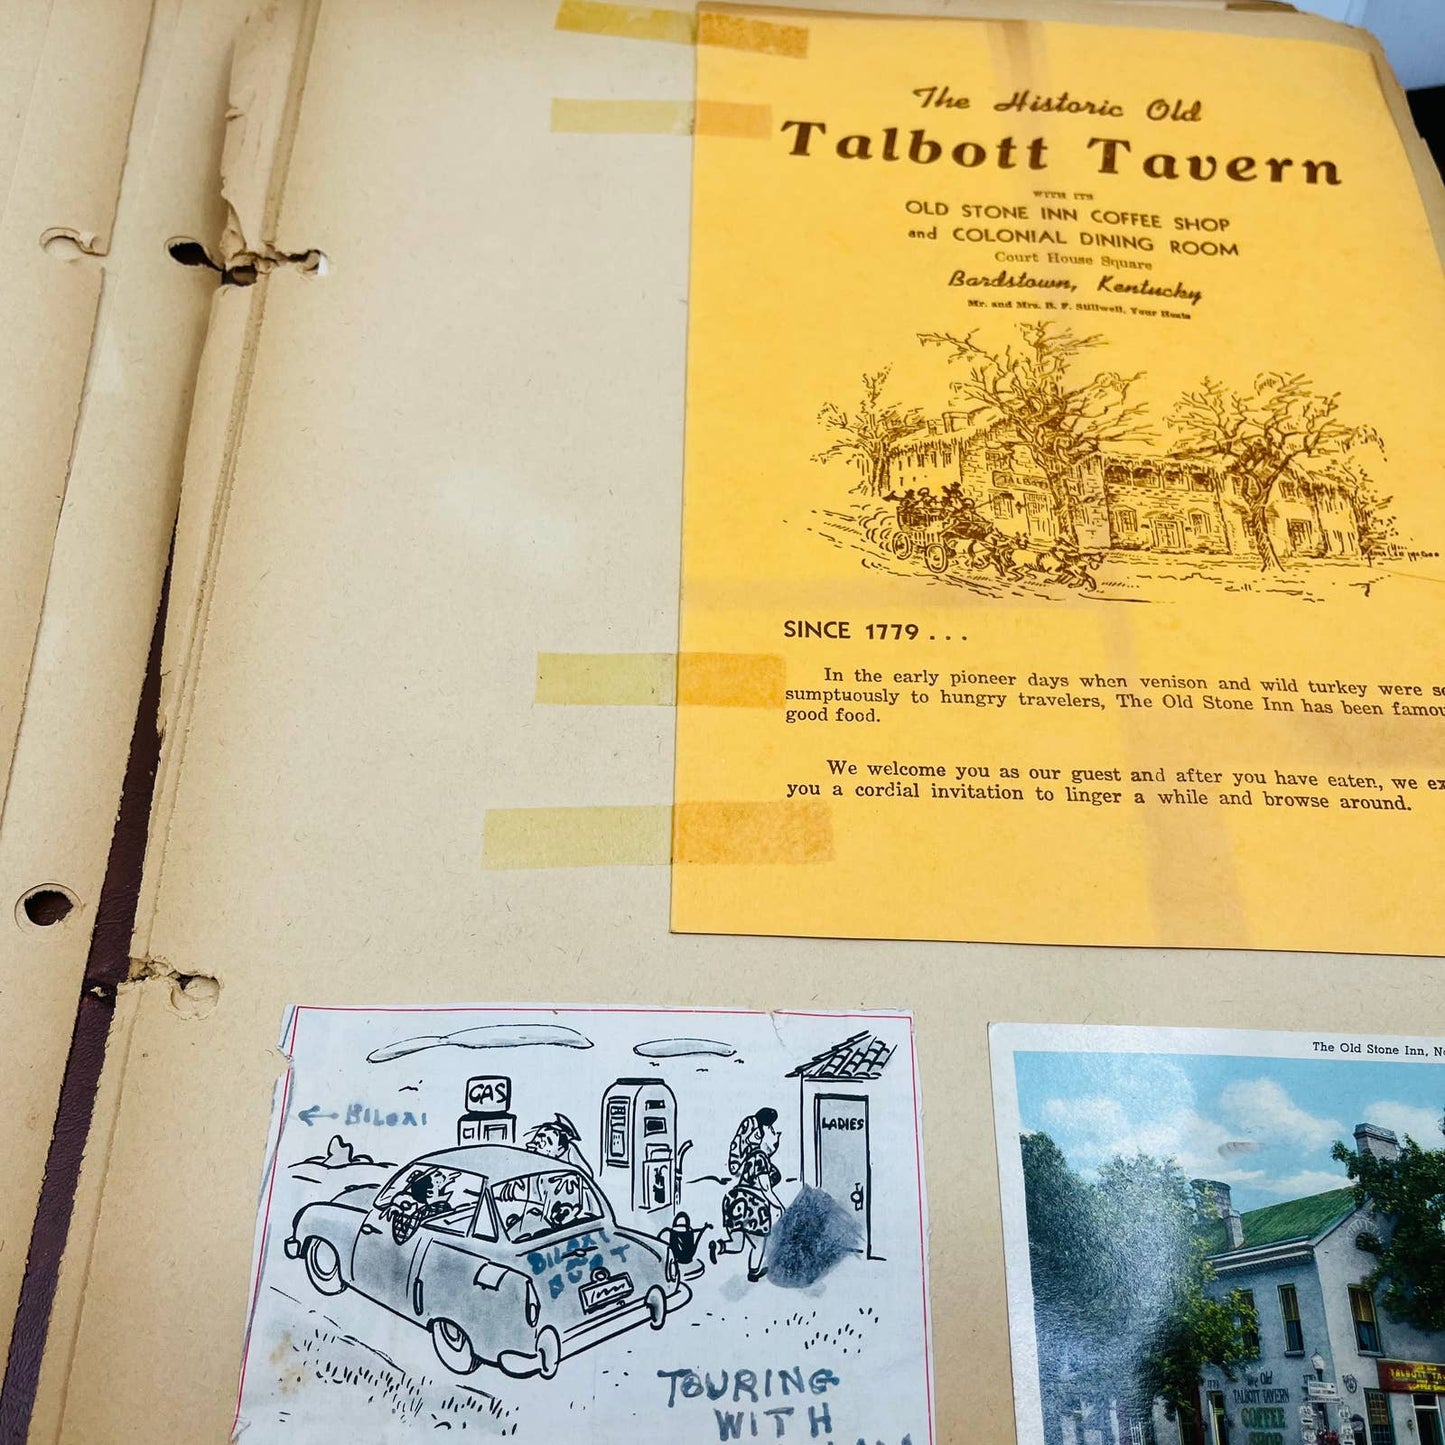 The Historic Old
Talbott Tavern
WITH ITS
OLD STONE INN COFFEE SHOP
and COLONIAL DINING ROOM
Court House Square
Bardstown, Kentucky
Mr. and Mrs. B. F. Stillwell, Your Hosts
TALBOTT
SINCE 1779 . . .
In the early pioneer days when venison and wild turkey were
sumptuously to hungry travelers, The Old Stone Inn has been
good food.
We welcome you as our guest and after you have eaten, we
you a cordial invitation to linger a while and browse around.
GAS
← BILOXI
LADIES
BILOXI
BUST
TOURING
WITH
The Old Stone Inn,
TALBOTT TAVERN
COFFEE
SHOP